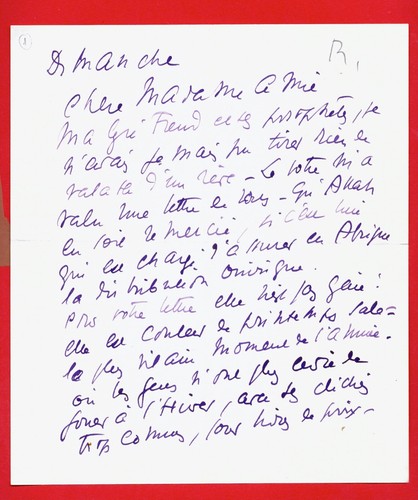 Dimanche
R.
Chère Madame amie
malgré Freud et ses prophètes, je
n'avais jamais pu tirer rien de
d'un rêve – Le votre m'a
valu une lettre de vous – qu'Allah
en soit remercié, si c'est lui
qui est chargé d'assurer en Afrique
la distribution onirique.
Pour votre lettre elle n'est pas gaie!
elle est couleur de printemps sale –
le plus vilain moment de l'année.
où les gens n'ont plus envie de
jouer à l'Hiver, avec ses clichés
trop connus,